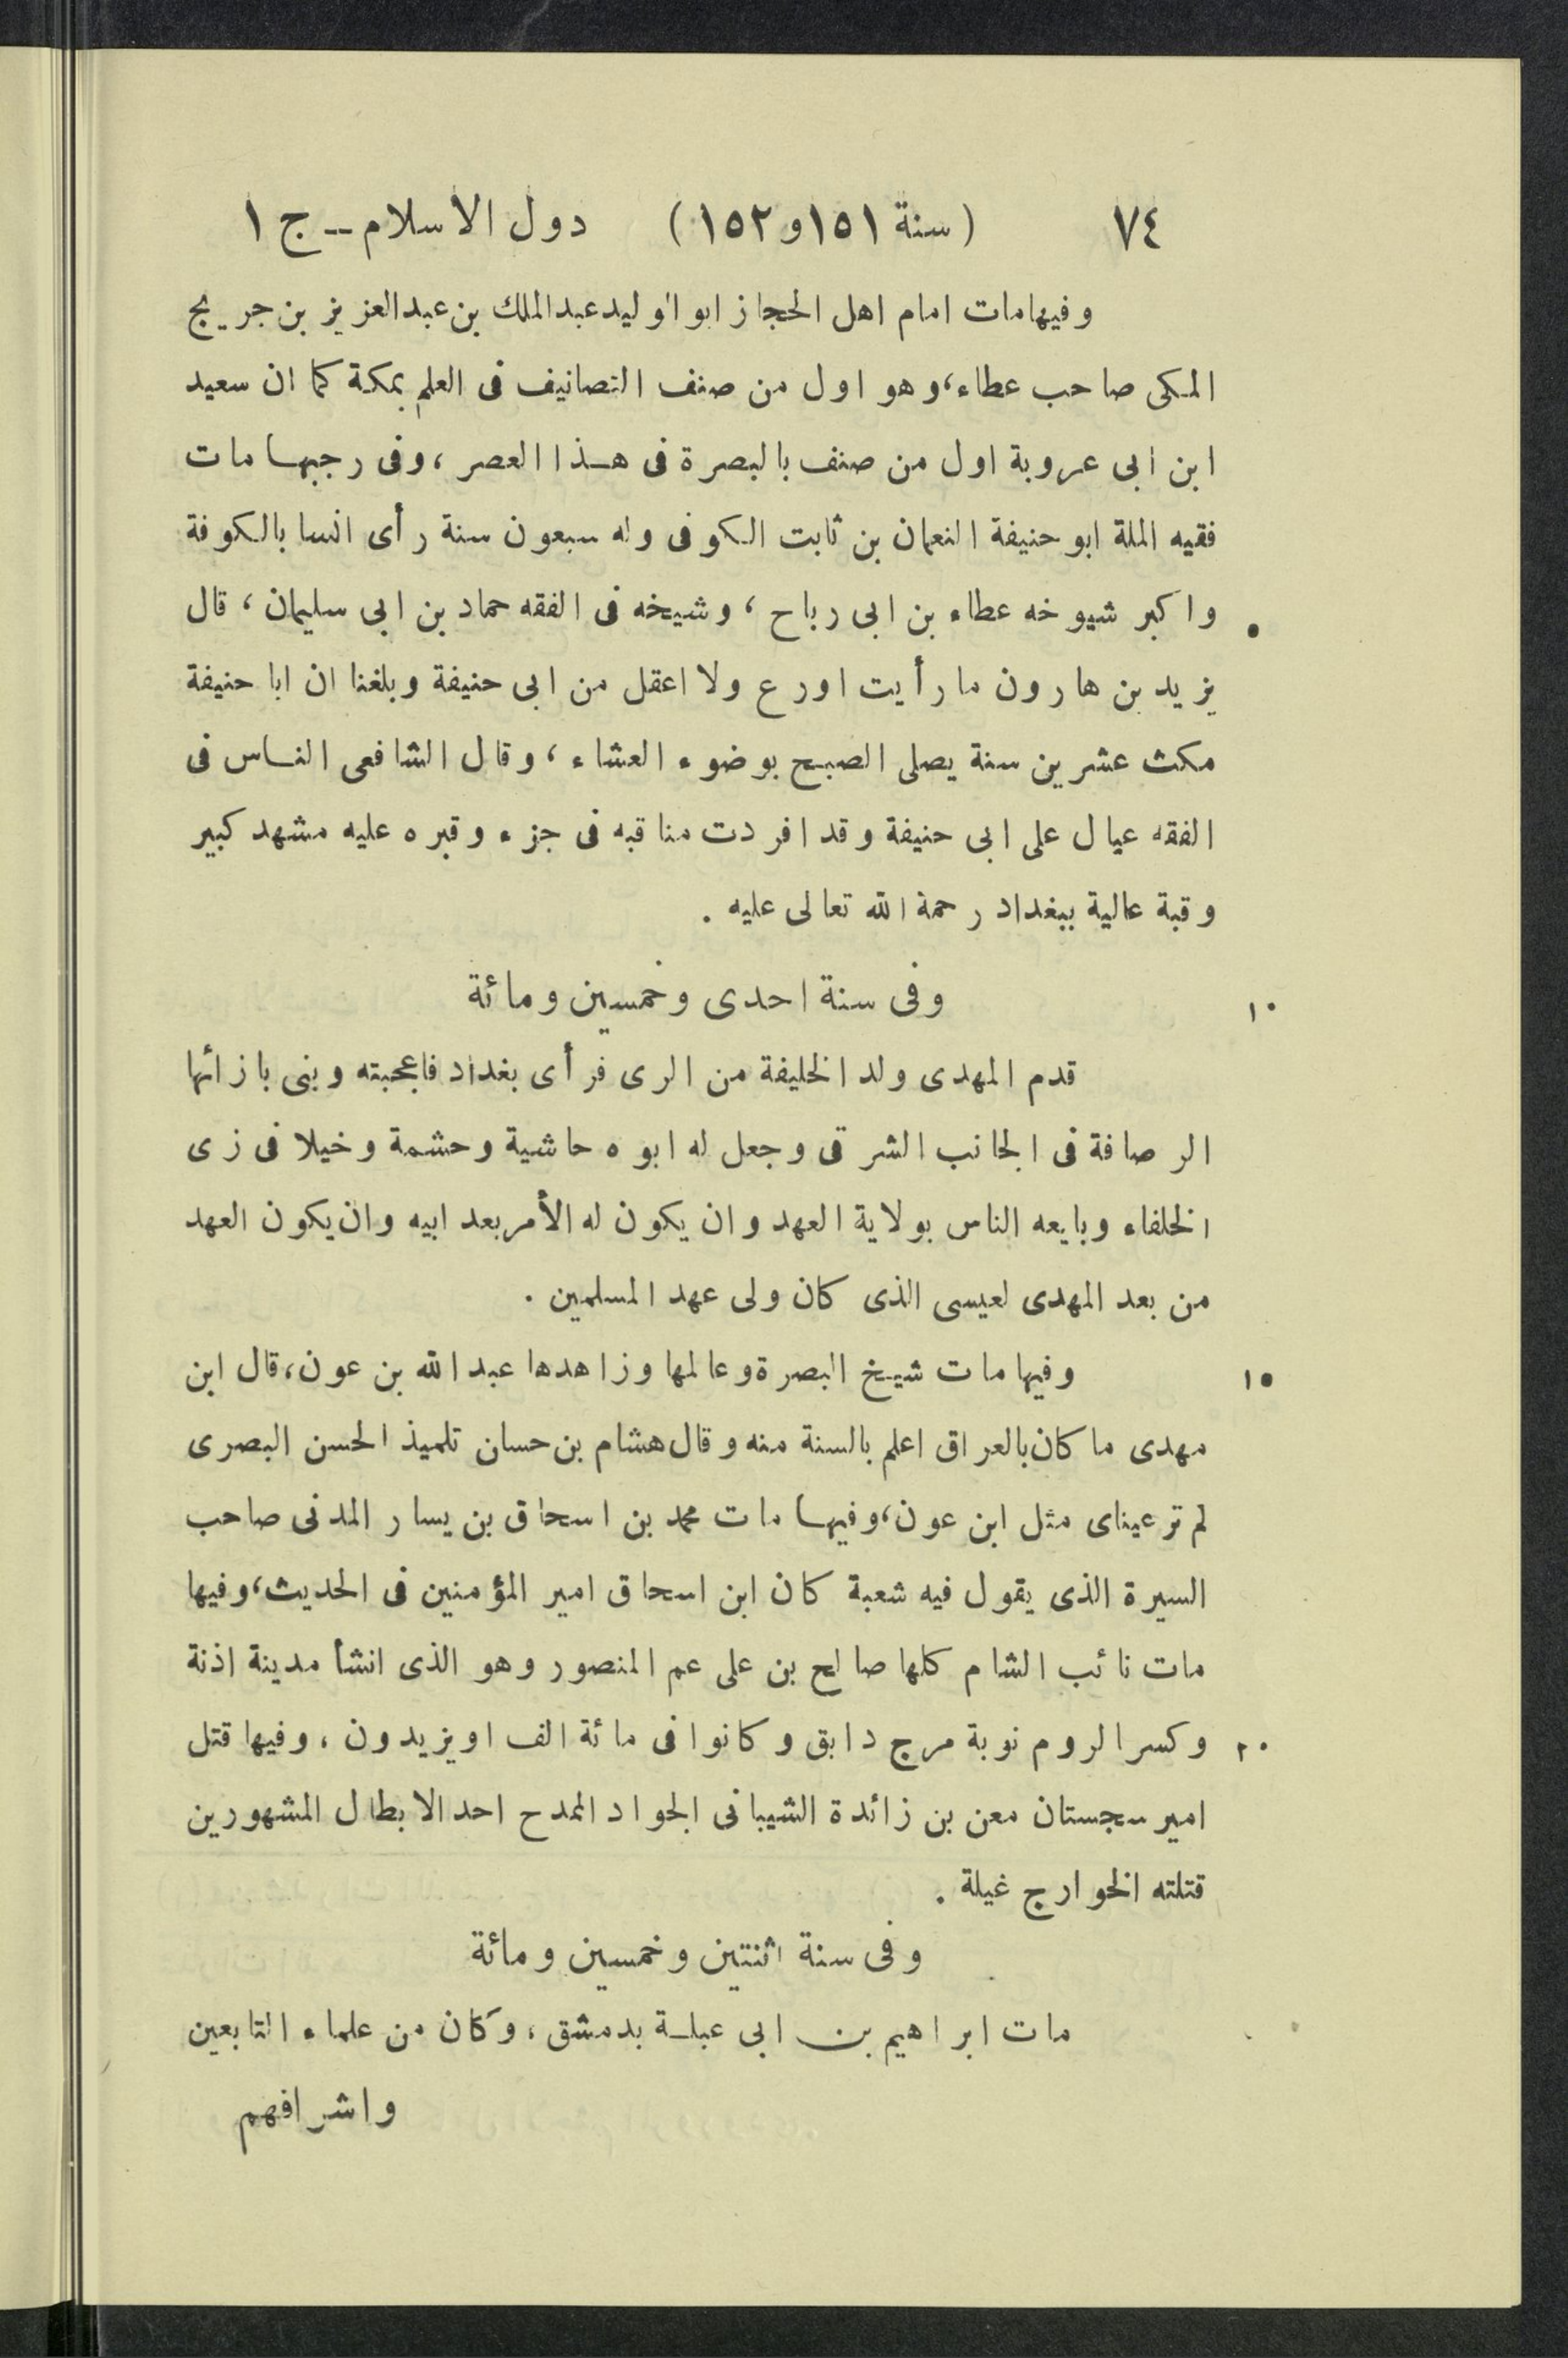 ٧٤ (سنة ١٥١ و ١٥٢) دول الاسلام -- ج ١
وفيها مات امام اهل الحجاز ابو الوليد عبد الملك بن عبد العزيز بن جريج
المكى صاحب عطاء، وهو اول من صنف التصانيف فى العلم بمكة كما ان سعيد
ابن ابى عروبة اول من صنف بالبصرة فى هذا العصر، وفى رجبها مات
فقيه الملة ابو حنيفة النعمان بن ثابت الكوفى وله سبعون سنة رأى انسا بالكوفة
٥ واكبر شيوخه عطاء بن ابى رباح، وشيخه فى الفقه حماد بن ابى سليمان، قال
يزيد بن هارون ما رأيت اورع ولا اعقل من ابى حنيفة وبلغنا ان ابا حنيفة
مكث عشرين سنة يصلى الصبح بوضوء العشاء، وقال الشافعى الناس فى
الفقه عيال على ابى حنيفة وقد افردت مناقبه فى جزء وقبره عليه مشهد كبير
وقبة عالية ببغداد رحمة الله تعالى عليه .
١٠ وفى سنة احدى وخمسين ومائة
قدم المهدى ولد الخليفة من الرى فرأى بغداد فاعجبته وبنى بازائها
الرصافة فى الجانب الشرقى وجعل له ابوه حاشية وحشمة وخيلا فى زى
الخلفاء وبايعه الناس بولاية العهد وان يكون له الأمر بعد ابيه وان يكون العهد
من بعد المهدى لعيسى الذى كان ولى عهد المسلمين .
١٥ وفيها مات شيخ البصرة وعالمها وزاهدها عبد الله بن عون، قال ابن
مهدى ما كان بالعراق اعلم بالسنة منه وقال هشام بن حسان تلميذ الحسن البصرى
لم تر عيناى مثل ابن عون، وفيها مات محمد بن اسحاق بن يسار المدنى صاحب
السيرة الذى يقول فيه شعبة كان ابن اسحاق امير المؤمنين فى الحديث، وفيها
مات نائب الشام كلها صالح بن على عم المنصور وهو الذى انشأ مدينة اذنة
٢٠ وكسر الروم نوبة مرج دابق وكانوا فى مائة الف او يزيدون، وفيها قتل
امير سجستان معن بن زائدة الشيبانى الجواد الممدح احد الابطال المشهورين
قتلته الخوارج غيلة .
وفى سنة اثنتين وخمسين ومائة
مات ابراهيم بن ابى عبلة بدمشق، وكان من علماء التابعين
واشرافهم